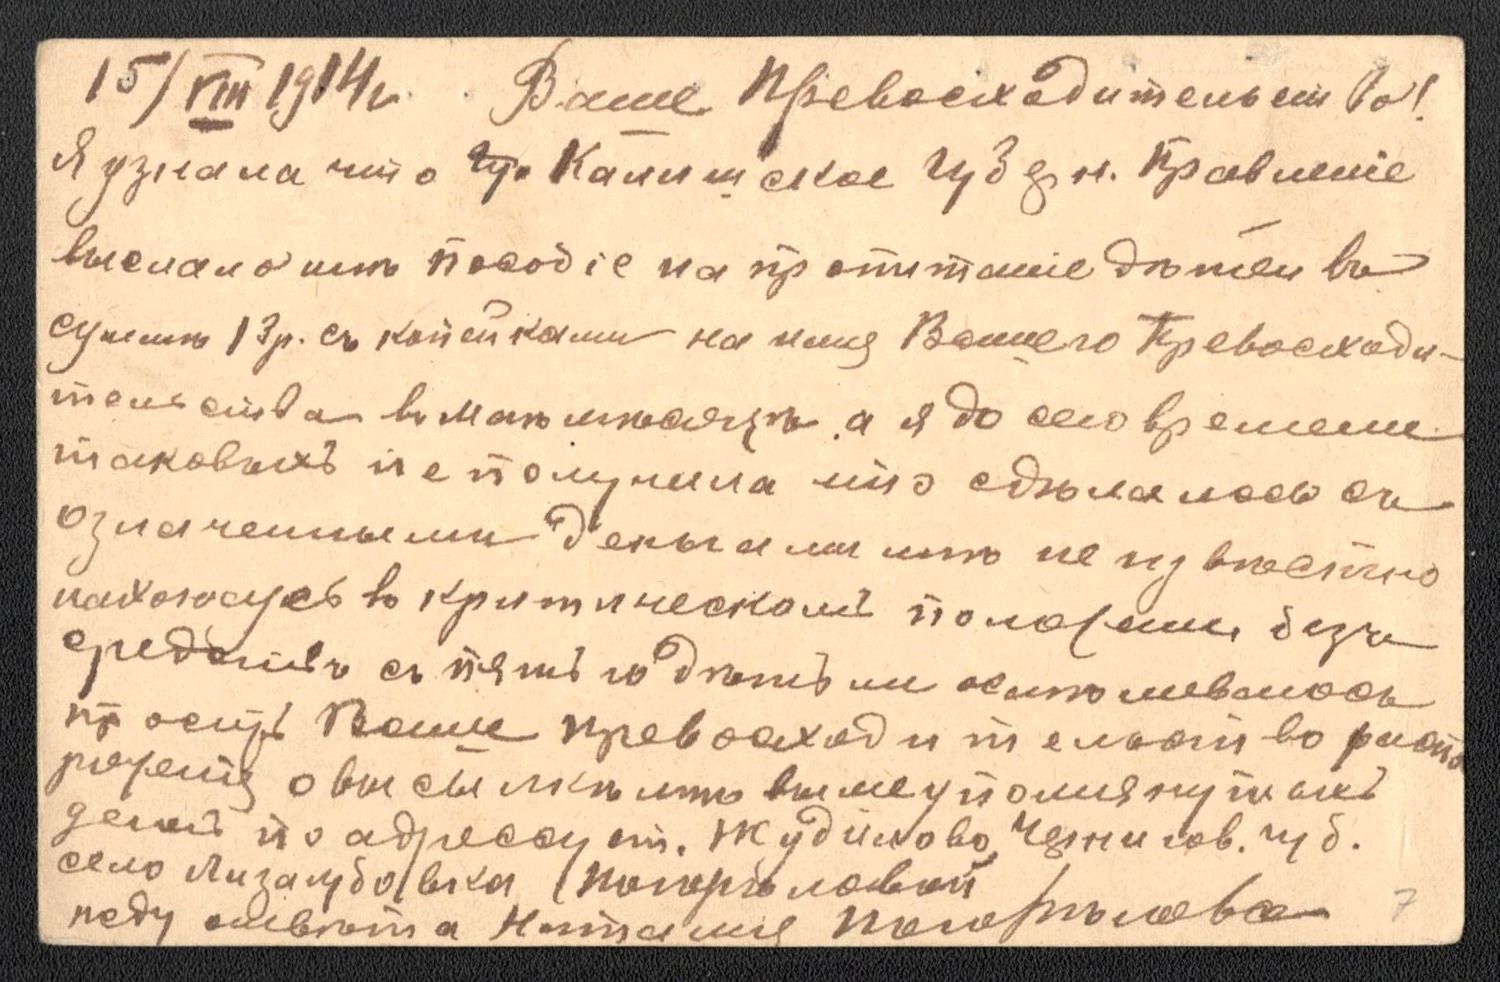 15/VIII 1914 г. Ваше Превосходительство!
Я узнала что Калишское Губерн. Правленіе
выслало мнѣ пособіе на пропитаніе дѣтей въ
суммѣ 13 р. съ копѣйками на имя Вашего Превосходи-
тельства въ маѣ мѣсяцѣ, а я до сего времени
таковыхъ не получила што сдѣлалось съ
означенными деньгами мнѣ не извѣстно
нахожусь въ критическомъ положеніи безъ
средствъ съ пятью дѣтьми
просить Ваше Превосходительство распо
реженія о высылкѣ мнѣ вышеупомянутыхъ
денегъ по адрессу ст. Жудилово, Чернигов. губ.
село Лизагубовка Погорѣловой
жду отвѣта Наталія Погорѣлова
7